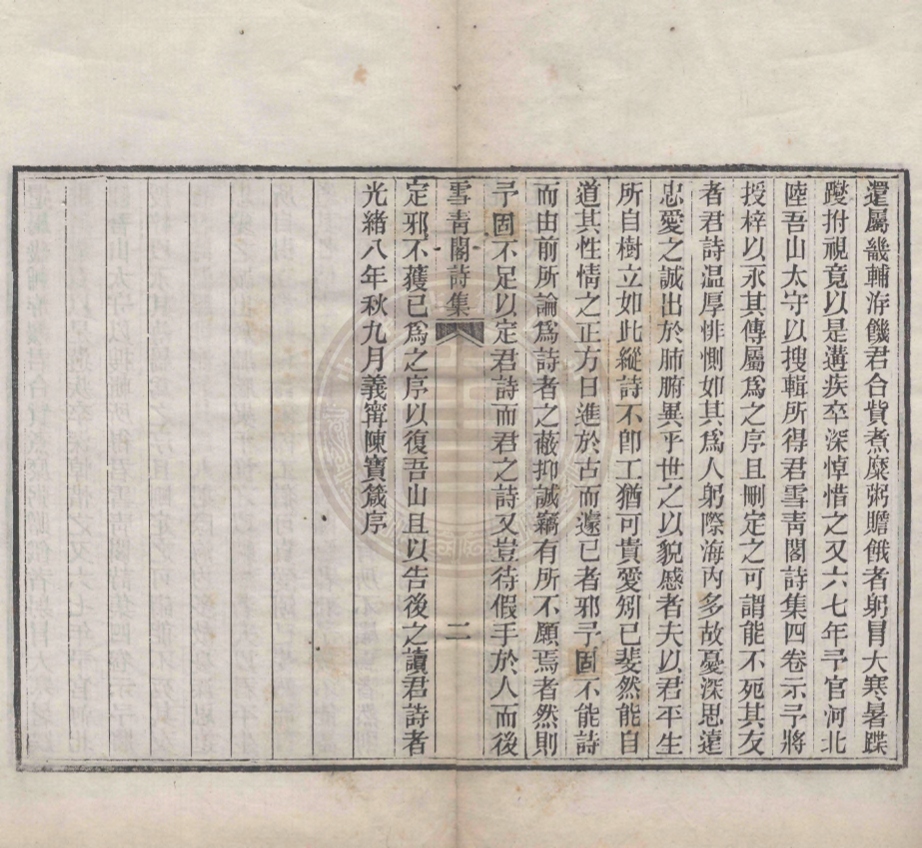 還屬畿輔洊饑君合貲煮糜粥贍餓者躬冒大寒暑蹀
躞拊視竟以是遘疾卒深悼惜之又六七年予官河北
陸吾山太守以搜輯所得君雪靑閣詩集四卷示予將
授梓以永其傳屬爲之序且刪定之可謂能不死其友
者君詩温厚悱惻如其爲人躬際海內多故憂深思遠
忠愛之誠出於肺腑異乎世之以貌感者夫以君平生
所自樹立如此縱詩不卽工猶可貴愛矧已斐然能自
道其性情之正方日進於古而遽已者邪予固不能詩
而由前所論爲詩者之蔽抑誠竊有所不願焉者然則
予固不足以定君詩而君之詩又豈待假手於人而後
雪靑閣詩集
二
定邪不獲已爲之序以復吾山且以告後之讀君詩者
光緒八年秋九月義甯陳寶箴序